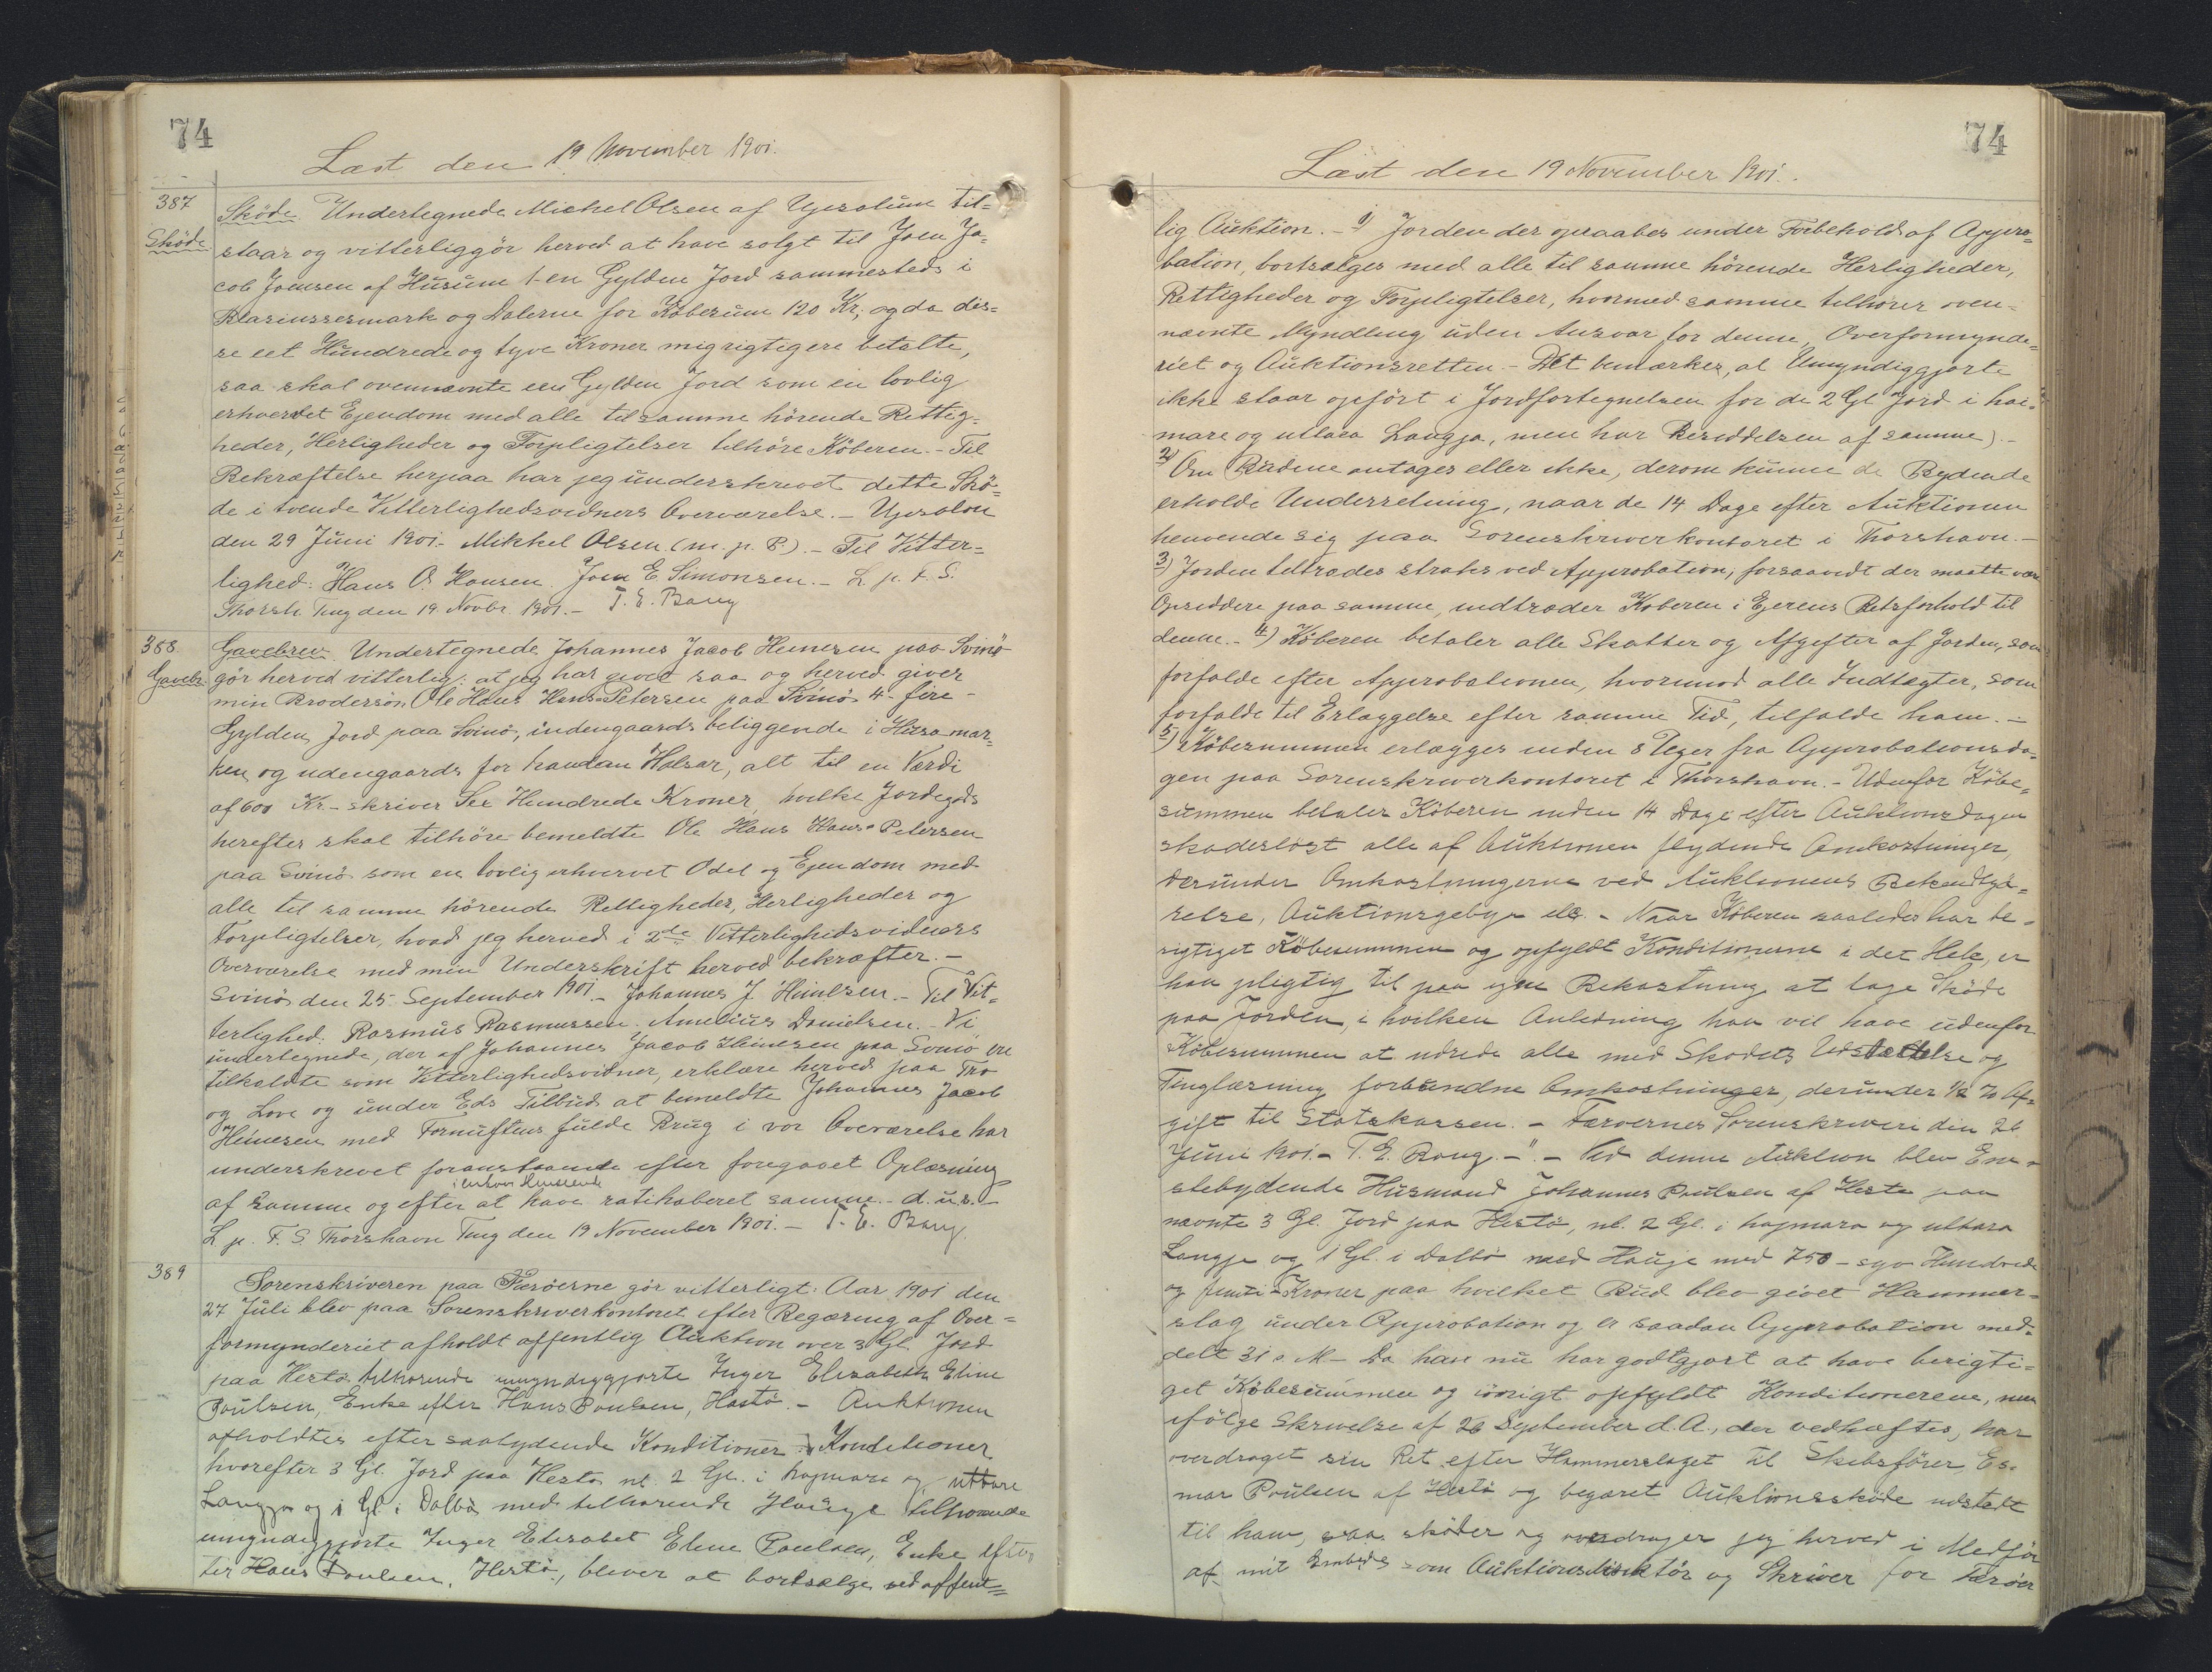 74
Læst den 19 November 1901.
387
Skøde
Skøde. Undertegnede Michel Olsen af Upsalum til=
staar og vitterliggör herved at have solgt til Joen Ja=
cob Joensen af Husum 1-en Gylden Jord sammesteds i
Blasiusesmark og Dalerne for Købesum 120 Kr; og da dis=
se eet Hundrede og tyve Kroner mig rigtig ere betalte,
saa skal ovennævnte een Gylden Jord som en lovlig
erhvervet Ejendom med alle til samme hörende Rettig=
heder, Herligheder og Forpligtelser tilhöre Köberen. - Til
Bekræftelse herpaa har jeg underskrevet dette Skö=
de i tvende Vitterlighedsvidners Overværelse. - Upsalon
den 29 Juni 1901. - Mikkel Olsen (m. p. P.). - Til Vitter=
lighed: Hans O. Hansen. Joen E. Simonsen. - L. p. F. S.
Thorsh. Ting den 19 Novbr 1901. - T. E. Bang
388
Gavebr.
Gavebrev. Undertegnede Johannes Jacob Heinesen paa Svinö
gör herved vitterlig: at jeg har givet saa og herved giver
min Brodersön Ole Hans Hans-Petersen paa Svinö 4 - fire -
Gylden Jord paa Svinö, indengaards beliggende i Heirsamar=
ken og udengaards for handan Halsar, alt til en Værdi
af 600 Kr - skriver Sex Hundrede Kroner, hvilke Jordegods
herefter skal tilhöre bemeldte Ole Hans Hans-Petersen
paa Svinö som en lovlig erhvervet Odel og Ejendom med
alle til samme hörende Rettigheder, Herligheder og
Forpligtelser, hvad jeg herved i 2de Vitterlighedsvidners
Overværelse med min Underskrift herved bekræfter. -
Svinö den 25. September 1901. - Johannes J. Heinesen. - Til Vit=
terlighed: Rasmus Rasmussen. Amelius Danielsen. - Vi
undertegnede, der af Johannes Jacob Heinesen paa Svinö ere
tilkaldte som Vitterlighedsvidner, erklære herved paa Tro
og Love og under Eds Tilbud at bemeldte Johannes Jacob
Heinesen med Fornuftens fulde Brug i vor Overværelse har
underskrevet foranstaaende efter foregaaet Oplæsning
af samme og efter at have ratihaberet samme. - d. u. s. -
L. p. F. S. Thorshavn Ting den 19 November 1901. - T. E. Bang
389
Sorenskriveren paa Færöerne gör vitterligt: Aar 1901 den
27 Juli blev paa Sorenskriverkontoret efter Begæring af Over=
formynderiet afholdt offentlig Auktion over 3 Gl. Jord
paa Hestö tilhørende umyndiggjorte Inger Elisabeth Eline
Poulsen, Enke efter Hans Poulsen, Hestö. - Auktionen
afholdtes efter saalydende Konditioner: Konditioner
hvorefter 3 Gl. Jord paa Hestö nl. 2 Gl. i hajmara og uttara
Langja og 1 Gl. i Dalbö med tilhørende Hauge tilhørende
umyndiggjorte Inger Elisabet Eline Poulsen, Enke efter
Hans Poulsen, Hestö, bliver at bortsælge ved offent=
74
Læst den 19 November 1901.
lig Auktion. - 1) Jorden der opraabes under Forbehold af Appro=
bation, bortsælges med alle til samme hörende Herligheder,
Rettigheder og Forpligtelser, hvormed samme tilhörer oven=
nævnte Myndling uden Ansvar for denne, Overformynde=
riet og Auktionsretten. - Det bemærkes, at Umyndiggjorte
ikke staar opfört i Jordfortegnelsen for de 2 Gl Jord i hai=
mare og uttara Langja, men har Besiddelsen af samme). -
2) Om Budene antages eller ikke, derom kunne de Bydende
erholde Underretning, naar de 14 Dage efter Auktionen
henvende sig paa Sorenskriverkontoret i Thorshavn. -
3) Jorden tiltrædes straks ved Approbation; forsaavidt der maatte være
Opsiddere paa samme, indtræder Køberen i Ejerens Retsforhold til
denne. - 4) Köberen betaler alle Skatter og Afgifter af Jorden, som
forfalde efter Approbationen, hvorimod alle Indtægter, som
forfalde til Erlæggelse efter samme Tid, tilfalde ham. -
5) Købesummen erlægges inden 8 Uger fra Approbationsda=
gen paa Sorenskriverkontoret i Thorshavn. - Udenfor Købe=
summen betaler Köberen inden 14 Dage efter Auktionsdagen
skadesløst alle af Auktionen flydende Omkostninger,
derunder Omkostningerne ved Auktionens Bekendtgö=
relse, Auktionsgebyr etc. - Naar Köberen saaledes har be=
rigtiget Købesummen og opfyldt Konditionerne i det Hele, er
han pligtig til paa egen Bekostning at tage Sköde
paa Jorden, i hvilken Anledning han vil have udenfor
Købesummen at udrede alle med Skødets Udstædelse og
Tinglæsning forbundne Omkostninger, derunder ½ % Af=
gift til Statskassen. - Færøernes Sorenskriveri den 26
Juni 1901. - T. E. Bang. -". - Ved denne Auktion blev Em=
stebydende Husmand Johannes Poulsen af Hestö paa
nævnte 3 Gl. Jord paa Hestö, nl. 2 Gl. i hajmara og uttara
Langja og 1 Gl. i Dalbö med Hauge med 750 - syv Hundrede
og femti - Kroner paa hvilket Bud blev givet Hammer=
slag under Approbation og er saadan Approbation med=
delt 31 s. M. - Da han nu har godtgjort at have berigti=
get Købesummen og iövrigt opfyldt Konditionerne, men
ifölge Skrivelse af 26 September d. A., der vedhæftes, har
overdraget sin Ret efter Hammerslaget til Skibsfører Es=
mar Poulsen af Hestö og begæret Auktionsskøde udstedt
til ham, saa skøder og overdrager jeg herved i Medför
af mit Embede som Auktionsdirektör og Skriver for Færöer